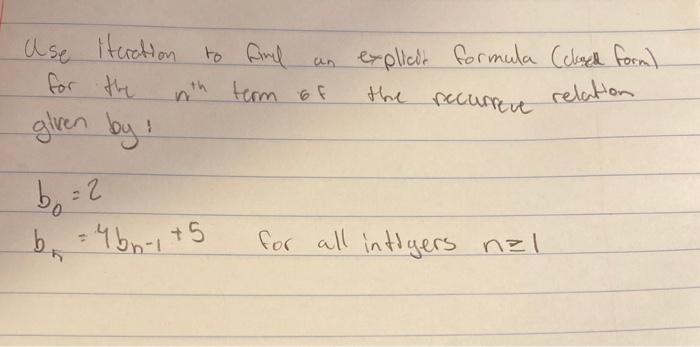 Use iteration to find an explicit formula (closed form)
for the nth term of the recurreve relation
given by:
b₀ = 2
bₙ = 4bₙ₋₁ + 5 for all intigers n ≥ 1